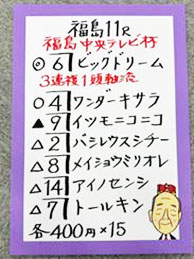 福島11R
福島中央テレビ杯
◎6 ビッグドリーム
3連複1頭軸流
○4 ワンダーキサラ
▲9 イツモニコニコ
△2 バシレウスシチー
△8 メイショウミリオレ
△14 アイノセンシ
△7 トールキン
各400円×15